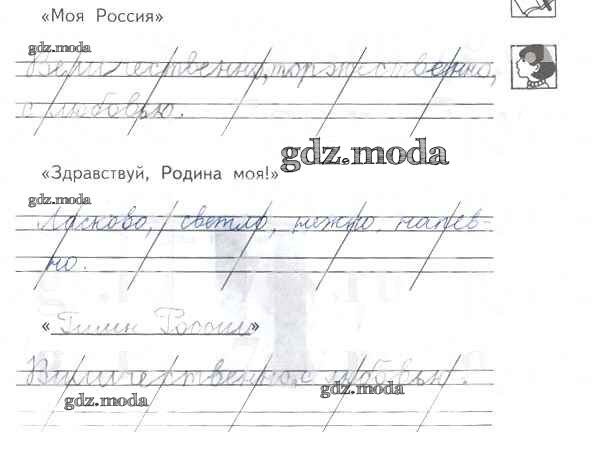 «Моя Россия»
gdz.moda
Величественно, торжественно,
с любовью.
gdz.moda
«Здравствуй, Родина моя!»
gdz.moda
Ласково, светло, нежно, напев-
но.
«Гимн России»
Величественно, с любовью.
gdz.moda
gdz.moda